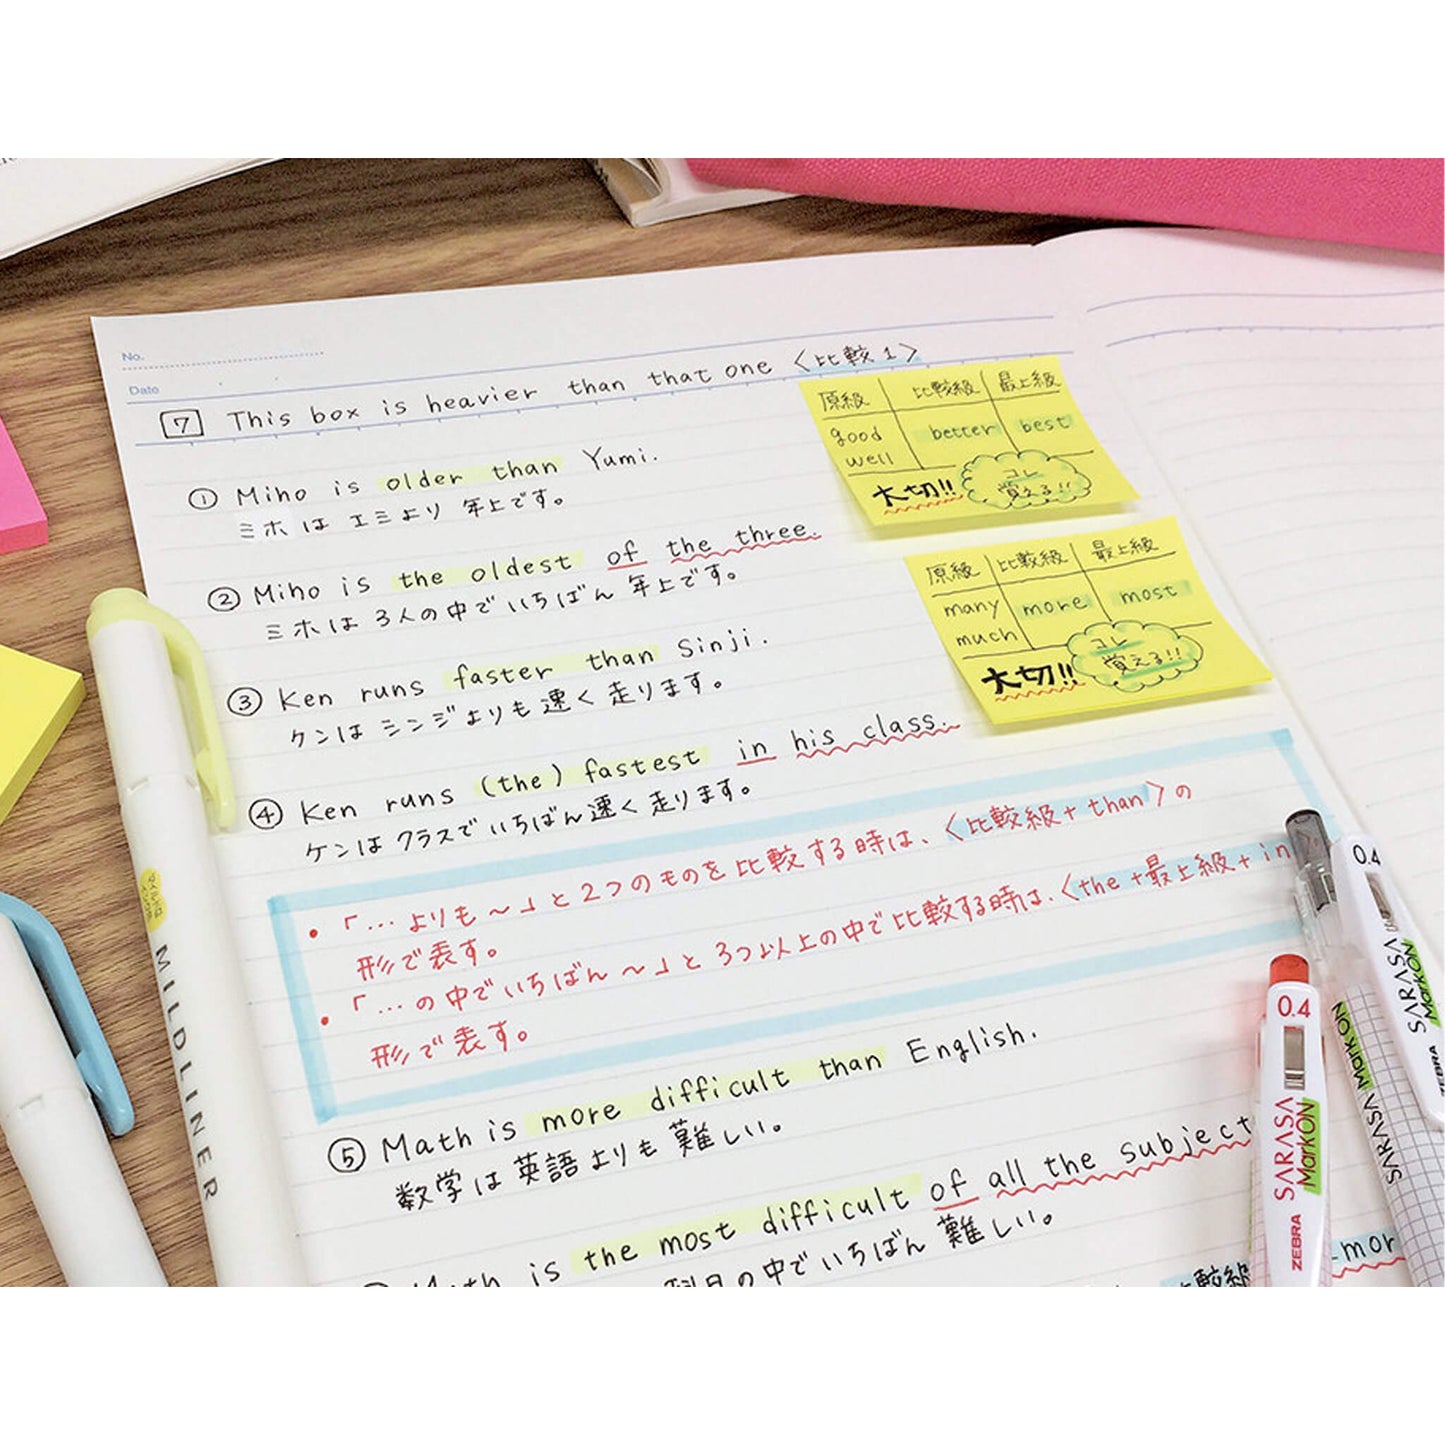 No.
Date
7 This box is heavier than that one 〈比較1〉
① Miho is older than Yumi.
ミホは エミより 年上です。
② Miho is the oldest of the three.
ミホは 3人の中で いちばん 年上です。
③ Ken runs faster than Sinji.
ケンは シンジよりも 速く 走ります。
④ Ken runs (the) fastest in his class.
ケンは クラスで いちばん 速く 走ります。
・「…よりも～」と2つのものを比較する時は、〈比較級+than〉の
形で表す。
・「…の中でいちばん～」と3つ以上の中で比較する時は、〈the+最上級+in
形で表す。
⑤ Math is more difficult than English.
数学は英語よりも難しい。
Math is the most difficult of all the subject
科目の中でいちばん難しい。
比較級
mor
原級 比較級 最上級
good better best
well
大切!! コレ
覚える!!
原級 比較級 最上級
many more most
much
大切!! コレ
覚える!!
マイルドな
MILDLINER
0.4
ZEBRA SARASA MarkON
SARASA MarkON
SARASA
0.4
ZEBRA SARASA MarkON